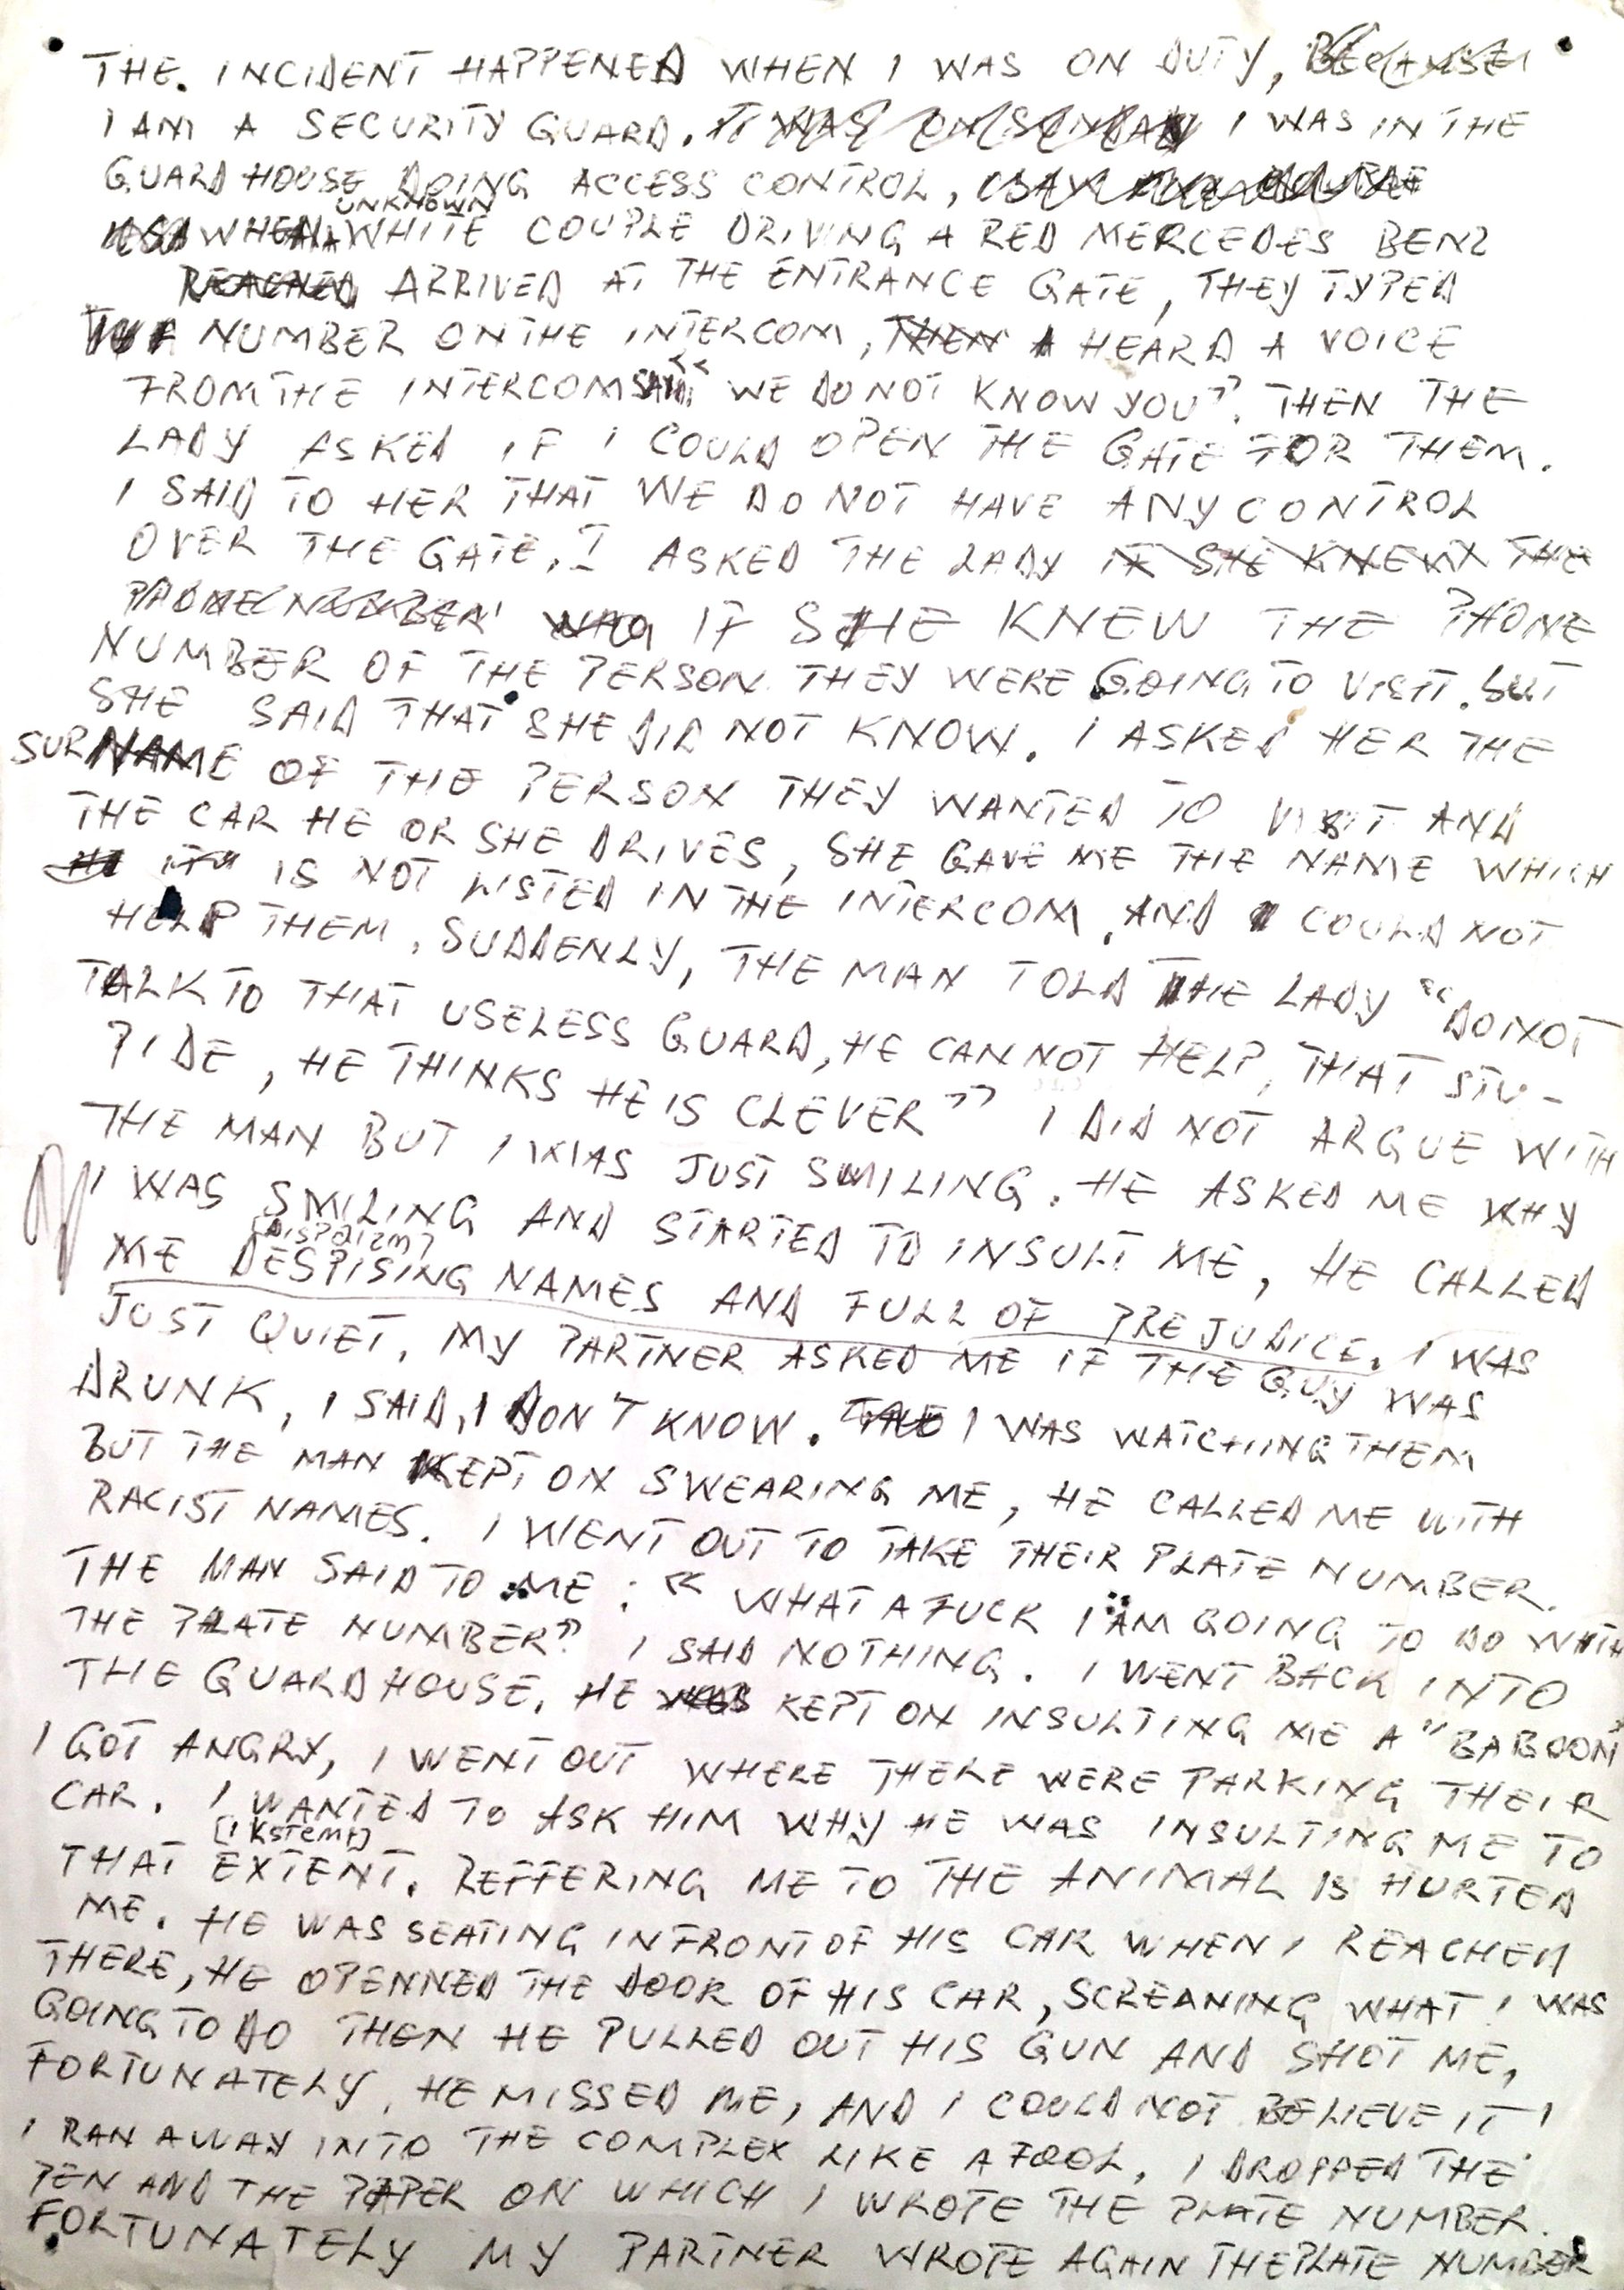 THE. INCIDENT HAPPENED WHEN I WAS ON DUTY, BECAUSE
I AM A SECURITY GUARD. IT WAS ON SUNDAY I WAS IN THE
GUARD HOUSE DOING ACCESS CONTROL,
UNKNOWN
WHEN A WHITE COUPLE DRIVING A RED MERCEDES BENZ
REACHED ARRIVED AT THE ENTRANCE GATE, THEY TYPED
THE NUMBER ON THE INTERCOM, THEN I HEARD A VOICE
FROM THE INTERCOM SAID: "WE DO NOT KNOW YOU". THEN THE
LADY ASKED IF I COULD OPEN THE GATE FOR THEM.
I SAID TO HER THAT WE DO NOT HAVE ANY CONTROL
OVER THE GATE. I ASKED THE LADY IF SHE KNEW THE
PHONE NUMBER IF SHE KNEW THE PHONE
NUMBER OF THE PERSON THEY WERE GOING TO VISIT. BUT
SHE SAID THAT SHE DID NOT KNOW. I ASKED HER THE
SURNAME OF THE PERSON THEY WANTED TO VISIT AND
THE CAR HE OR SHE DRIVES, SHE GAVE ME THE NAME WHICH
IS NOT LISTED IN THE INTERCOM, AND I COULD NOT
HELP THEM. SUDDENLY, THE MAN TOLD THE LADY "DO NOT
TALK TO THAT USELESS GUARD, HE CANNOT HELP, THAT STU-
PIDE, HE THINKS HE IS CLEVER" I DID NOT ARGUE WITH
THE MAN BUT I WAS JUST SMILING. HE ASKED ME WHY
I WAS SMILING AND STARTED TO INSULT ME, HE CALLED
ME DESPISING NAMES AND FULL OF PREJUDICE. I WAS
JUST QUIET. MY PARTNER ASKED ME IF THE GUY WAS
DRUNK, I SAID, I DON'T KNOW. I WAS WATCHING THEM
BUT THE MAN KEPT ON SWEARING ME, HE CALLED ME WITH
RACIST NAMES. I WENT OUT TO TAKE THEIR PLATE NUMBER.
THE MAN SAID TO ME : "WHAT A FUCK I AM GOING TO DO WITH
THE PLATE NUMBER" I SAID NOTHING. I WENT BACK INTO
THE GUARD HOUSE, HE WAS KEPT ON INSULTING ME A "BABOON"
I GOT ANGRY, I WENT OUT WHERE THERE WERE PARKING THEIR
CAR. I WANTED TO ASK HIM WHY HE WAS INSULTING ME TO
THAT EXTENT. REFFERING ME TO THE ANIMAL IS HURTED
ME. HE WAS SEATING IN FRONT OF HIS CAR WHEN I REACHED
THERE, HE OPENNED THE DOOR OF HIS CAR, SCREANING WHAT I WAS
GOING TO DO THEN HE PULLED OUT HIS GUN AND SHOT ME,
FORTUNATELY, HE MISSED ME, AND I COULD NOT BELIEVE IT!
I RAN AWAY INTO THE COMPLEX LIKE A FOOL, I DROPPED THE
PEN AND THE PAPER ON WHICH I WROTE THE PLATE NUMBER.
FORTUNATELY MY PARTNER WROTE AGAIN THE PLATE NUMBER